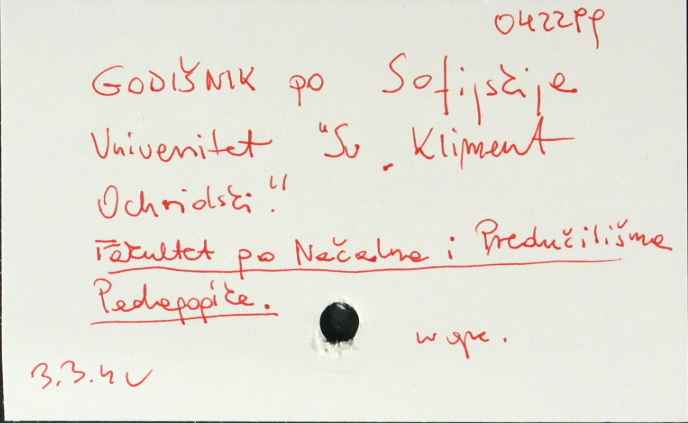 042299
GODIŠNIK po Sofijsčije
Univerzitet "Sv. Kliment
Ochridski."
Fakultet po Načalna i Predučilišna
Pedagogiče.
3.3.4 v